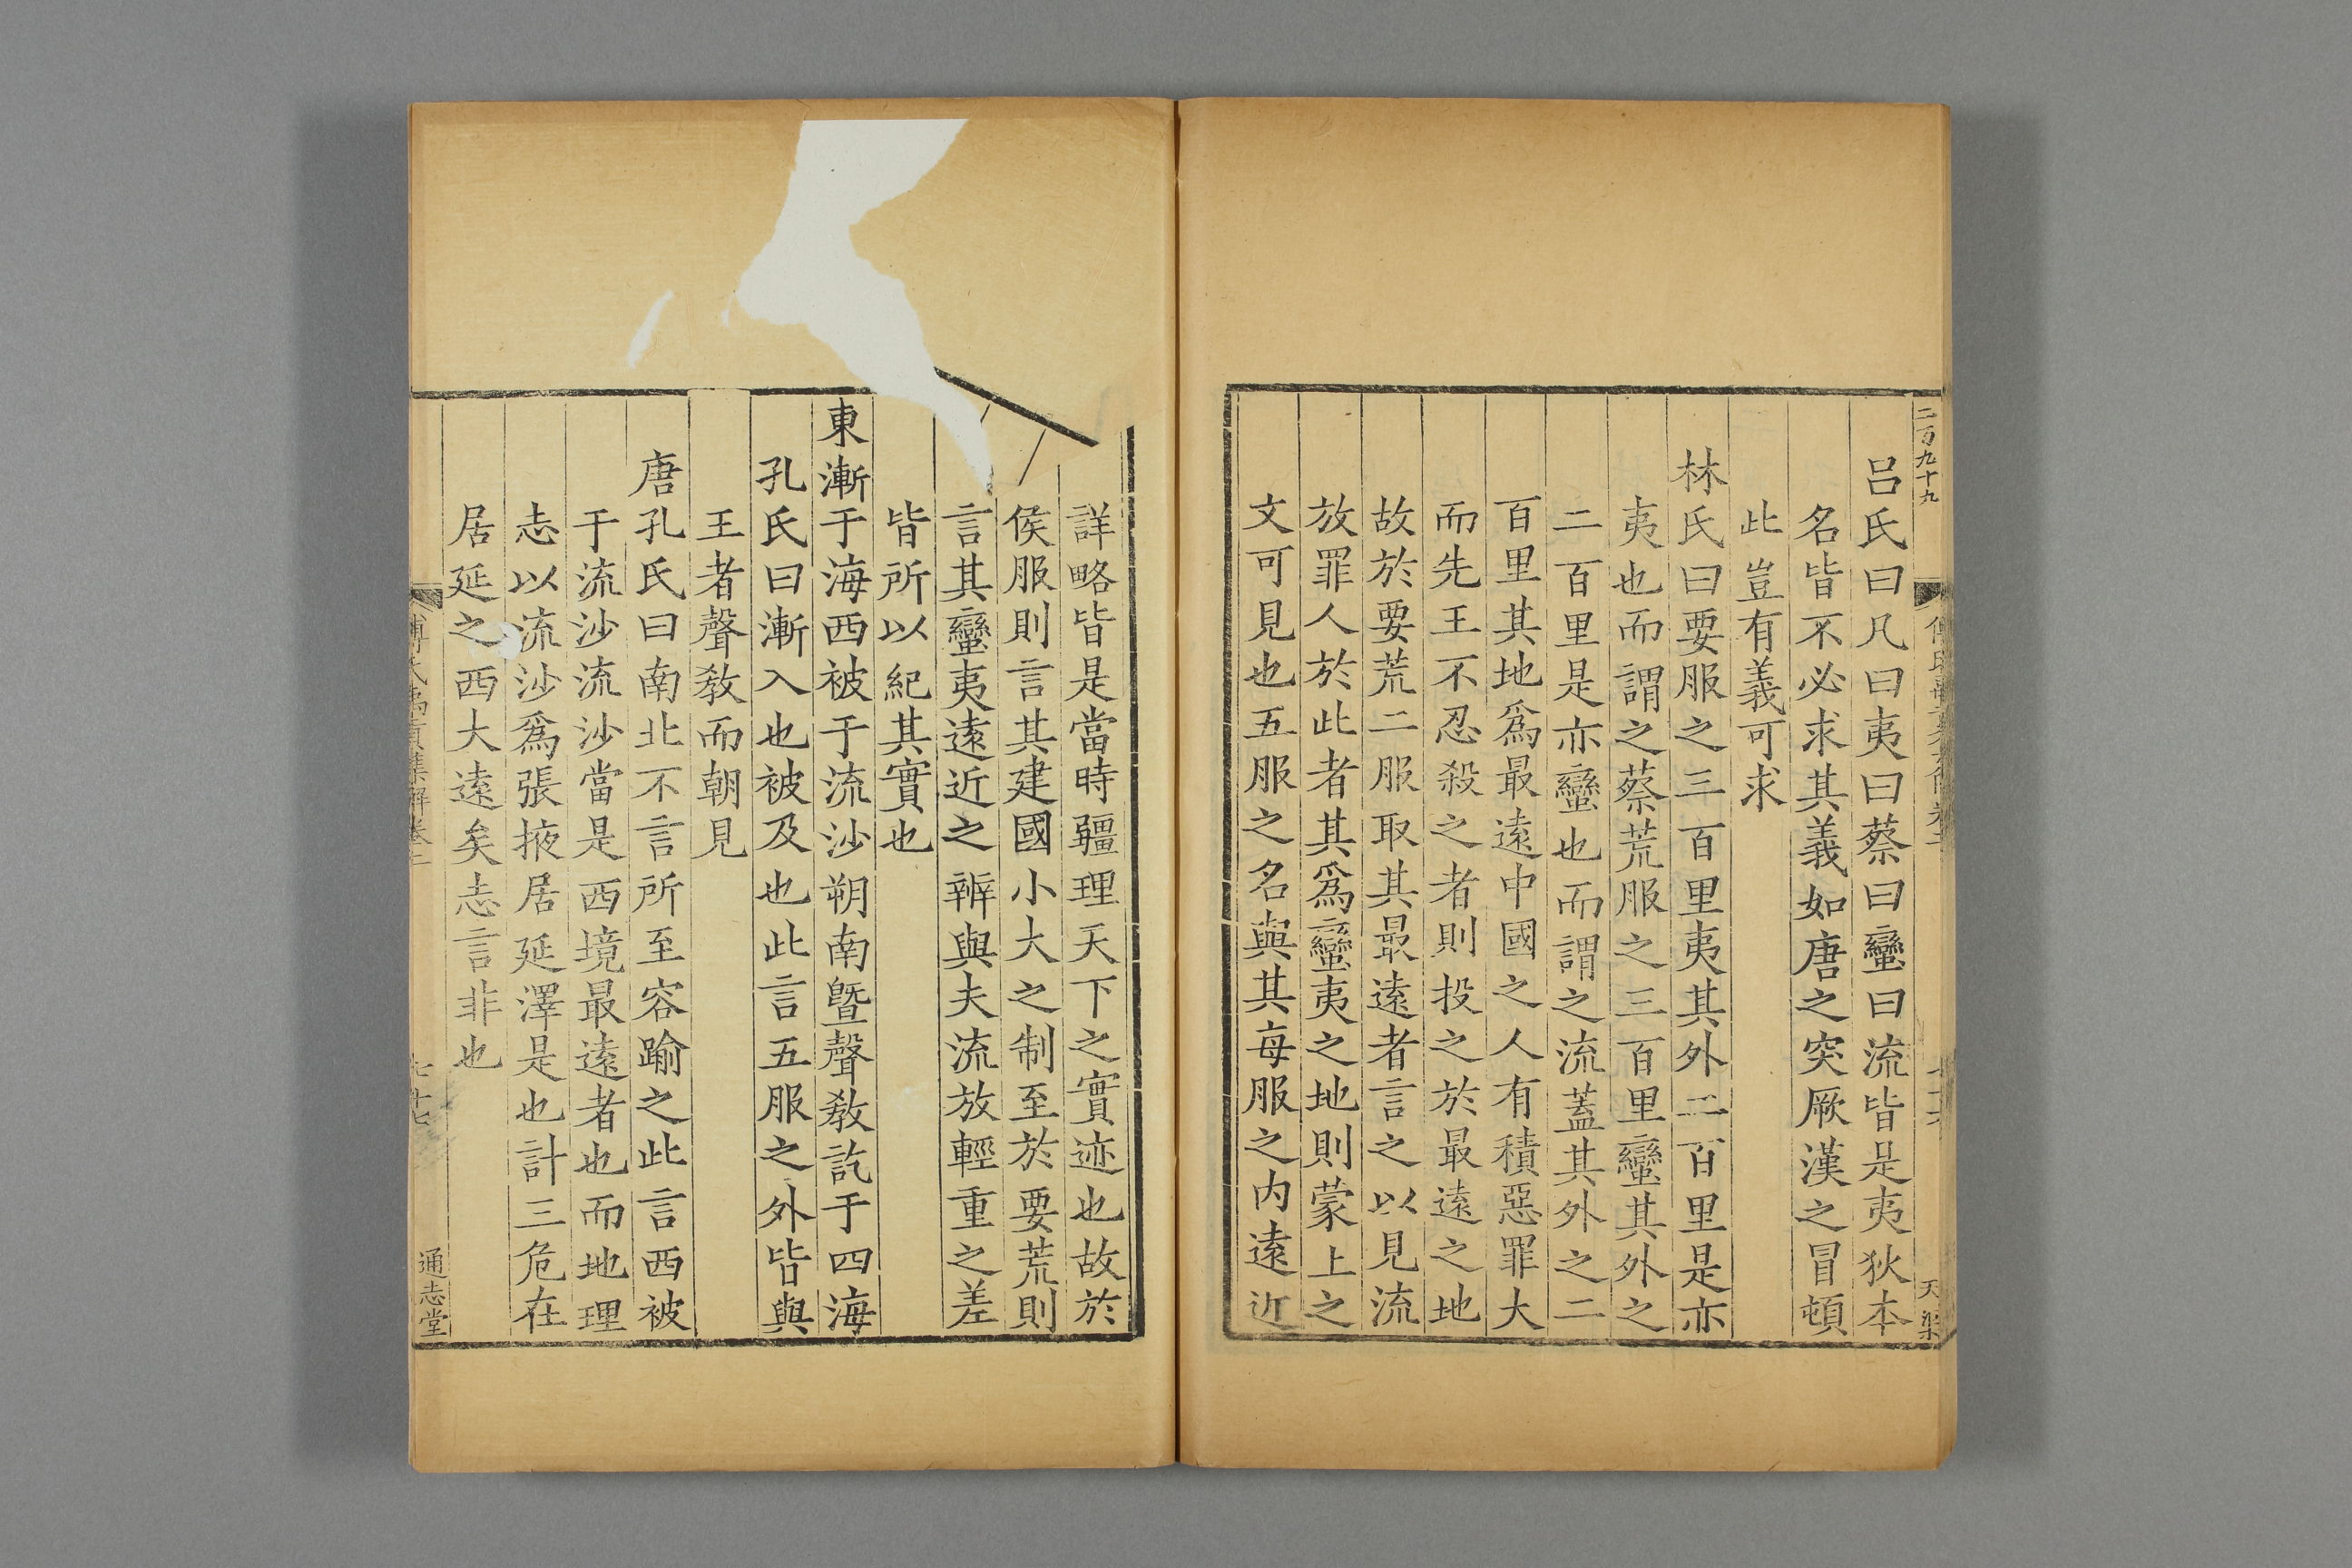 二百九十九
呂氏曰凡曰夷曰蔡曰蠻曰流皆是夷狄本
名皆不必求其義如唐之突厥漢之冒頓
此豈有義可求
林氏曰要服之三百里夷其外二百里是亦
夷也而謂之蔡荒服之三百里蠻其外之
二百里是亦蠻也而謂之流蓋其外之二
百里其地爲最遠中國之人有積惡罪大
而先王不忍殺之者則投之於最遠之地
故於要荒二服取其最遠者言之以見流
放罪人於此者其爲蠻夷之地則蒙上之
文可見也五服之名與其每服之内遠近
詳略皆是當時疆理天下之實迹也故於
侯服則言其建國小大之制至於要荒則
言其蠻夷遠近之辨與夫流放輕重之差
皆所以紀其實也
東漸于海西被于流沙朔南曁聲敎訖于四海
孔氏曰漸入也被及也此言五服之外皆與
王者聲敎而朝見
唐孔氏曰南北不言所至容踰之此言西被
于流沙流沙當是西境最遠者也而地理
志以流沙爲張掖居延澤是也計三危在
居延之西大遠矣志言非也
通志堂